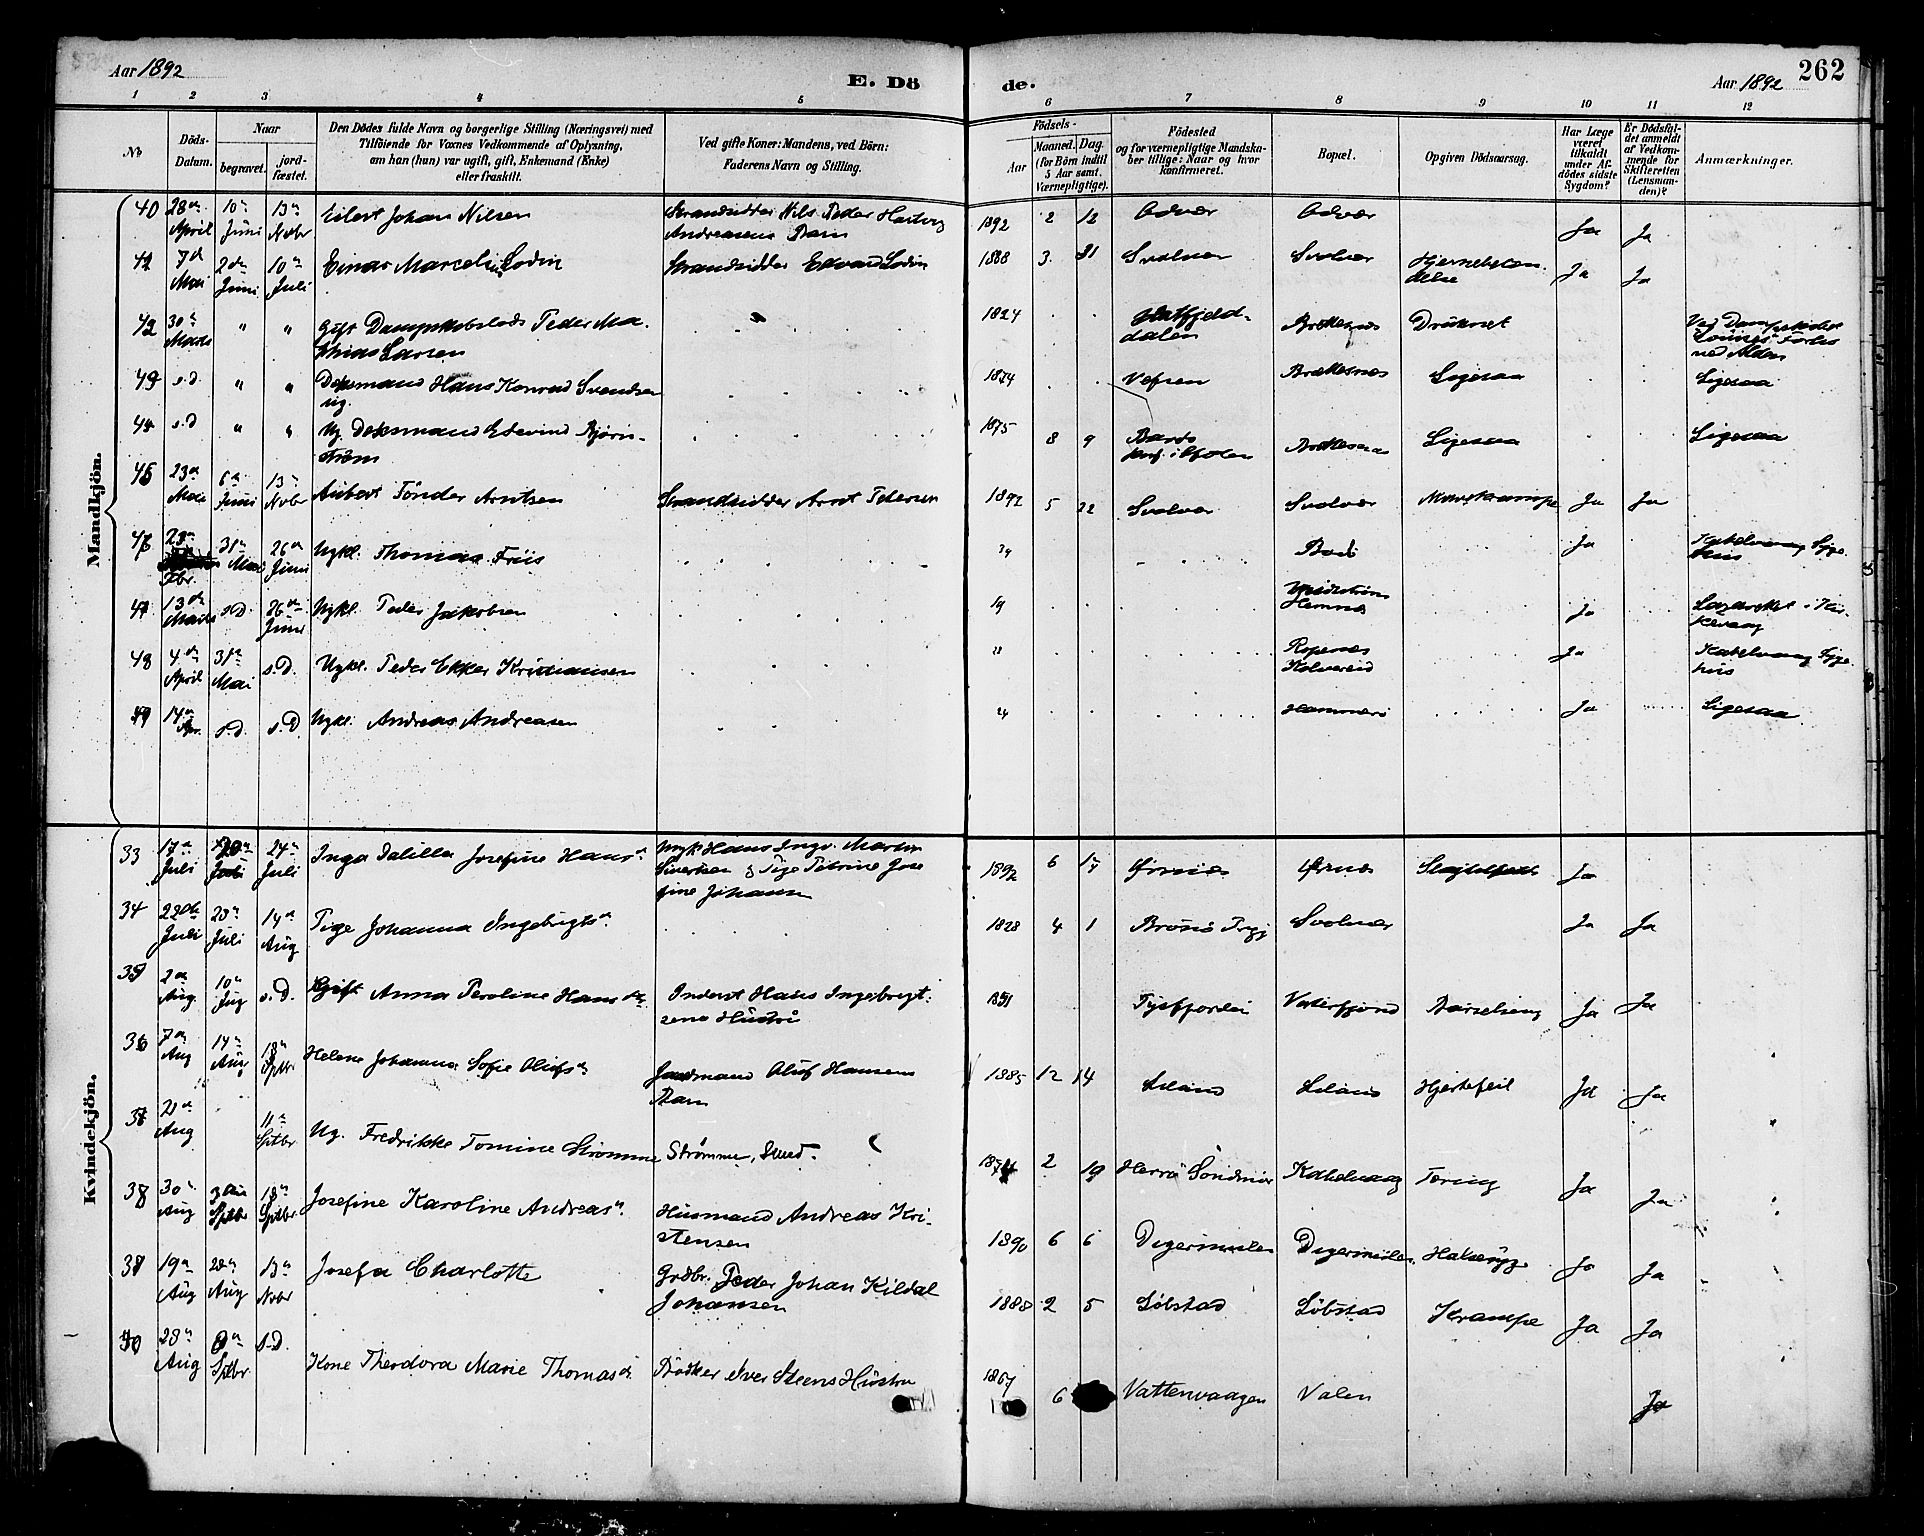 Aar 1892
E. Dö
de.
Aar 1892
262
1 2 3 4 5 6 7 8 9 10 11 12
No
Döds-
Datum.
Naar
begravet.
jord-
fæstet.
Den Dödes fulde Navn og borgerlige Stilling (Næringsvei) med
Tilföiende for Voxnes Vedkommende af Oplysning,
om han (hun) var ugift, gift, Enkemand (Enke)
eller fraskilt.
Ved gifte Koner: Mandens, ved Börn:
Faderens Navn og Stilling.
Födsels-
Aar
Maaned. Dag.
(for Börn indtil
5 Aar samt
Værnepligtige).
Födested
og for værnepligtige Mandska-
ber tillige: Naar og hvor
konfirmeret.
Bopæl.
Opgiven Dödsaarsag.
Har Læge
været
tilkaldt
under Af-
dödes sidste
Sygdom?
Er Dödsfal-
det anmeldt
af Vedkom-
mende for
Skifteretten
(Lensman-
den)?
Anmærkninger.
Mandkjön.
40 28de April 10de Juni 13de Novbr Eilert Johan Nilsen Strandsidder Nils Peder Hartvig
Andreasens Barn 1892 2 12 Ja Ja
41 7de Mai 2den Juni 10de Juli Einar Marcelius Lodin Strandsidder Edvard Lodin 1888 3 31 Svolvær Svolvær Hjernebetæn-
delse Ja Ja
42 30te Marts " " Gift Dampskibslods Peder Ma-
thias Larsen 1824 Hatfjeld-
dalen Brettesnæs Druknet
43 s.D. " " Dæksmand Hans Konrad Svendsen
ug. 1874 Vefsen Brettesnæs Ligesaa Ligesaa
44 s.D " " Ug. Dæksmand Edevind Bjørn-
strøm 1875 8 9 Brettesnæs Ligesaa Ligesaa
45 23de Mai 6te Juni 13de Novbr Aubert Tønder Arntsen Strandsidder Arnt Petersen 1892 5 22 Svolvær Svolvær Mavekrampe Ja Ja
23de Fbr. 31te Mai 26de Juni Ugkl. Thomas Friis 24 Bodö Ja Kabelvaag Syge-
hus
13de Marts s.D. 26de Juni Ugkl. Peder Jakobsen 19 Hemnæs Ja
48 4de April 31te Mai s.D. Ugkl. Peder Ekker Kristiansen Kolvereid Ja Kabelvaag Syge-
hus
49 14de Apr. s.D. s.D. Ugkl. Andreas Andreasen 24 Hammerö Ja Ligesaa
Kvindekjön.
33 17de Juli 24de Juli Inga Dalilla Josefine Hansdr Ungk Hans Ingv. Martin
Sivertsen & Pige Petrine Jose-
fine Johansen 1892 6 Ørsnes Ørsnes Ja
34 22de Juli 29de Juli 14de Aug Pige Johanna Ingebrigtsdr. 1828 4 1 Brönö Prgj Svolvær Ja Ja
35 2de Aug 10de Aug s.D. Gift Anna Peroline Hansdr. Inderst Hans Ingebrigt-
sens Hustru 1851 Tysfjorden Vaterfjord Barselseng Ja Ja
36 7de Aug 14de Aug 18de Sptbr Helene Johanna Sofie Olufsdr Jordmand Oluf Hansens
Barn 1885 12 14 Hjertefeil Ja Ja
37 21de Aug 11te Sptbr Ug. Fredrikke Tomine Strømme Strømme, Smed. 2 19 Herrö Söndmör Kabelvaag Tæring Ja Ja
38 30te Aug 18de Sptbr. Josefine Karoline Andreasdr. Husmand Andreas Kri-
stensen 1890 6 6 Digermulen Digermulen Halssyge Ja Ja
19de Aug 28de Aug 13de Novbr Josefa Charlotte Grdbr. Peder Johan Kildal
Johansen 1888 2 5 Löbstad Löbstad Krampe Ja Ja
40 28de Aug Sptbr s.D. Kone Theodora Marie Thomasdr. Bödker Iver Steens Hustru 1867 6 Vattervaagen Valen Ja